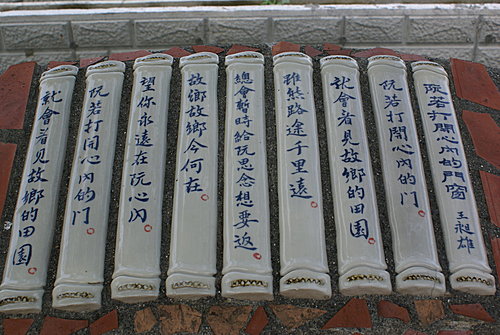 阮若打開心內的門窗 王昶雄
阮若打開心內的門
就會看見故鄉的田園
雖然路途千里遠
總會暫時給阮思念想要返
故鄉故鄉今何在
望你永遠在阮心內
阮若打開心內的門
就會看見故鄉的田園